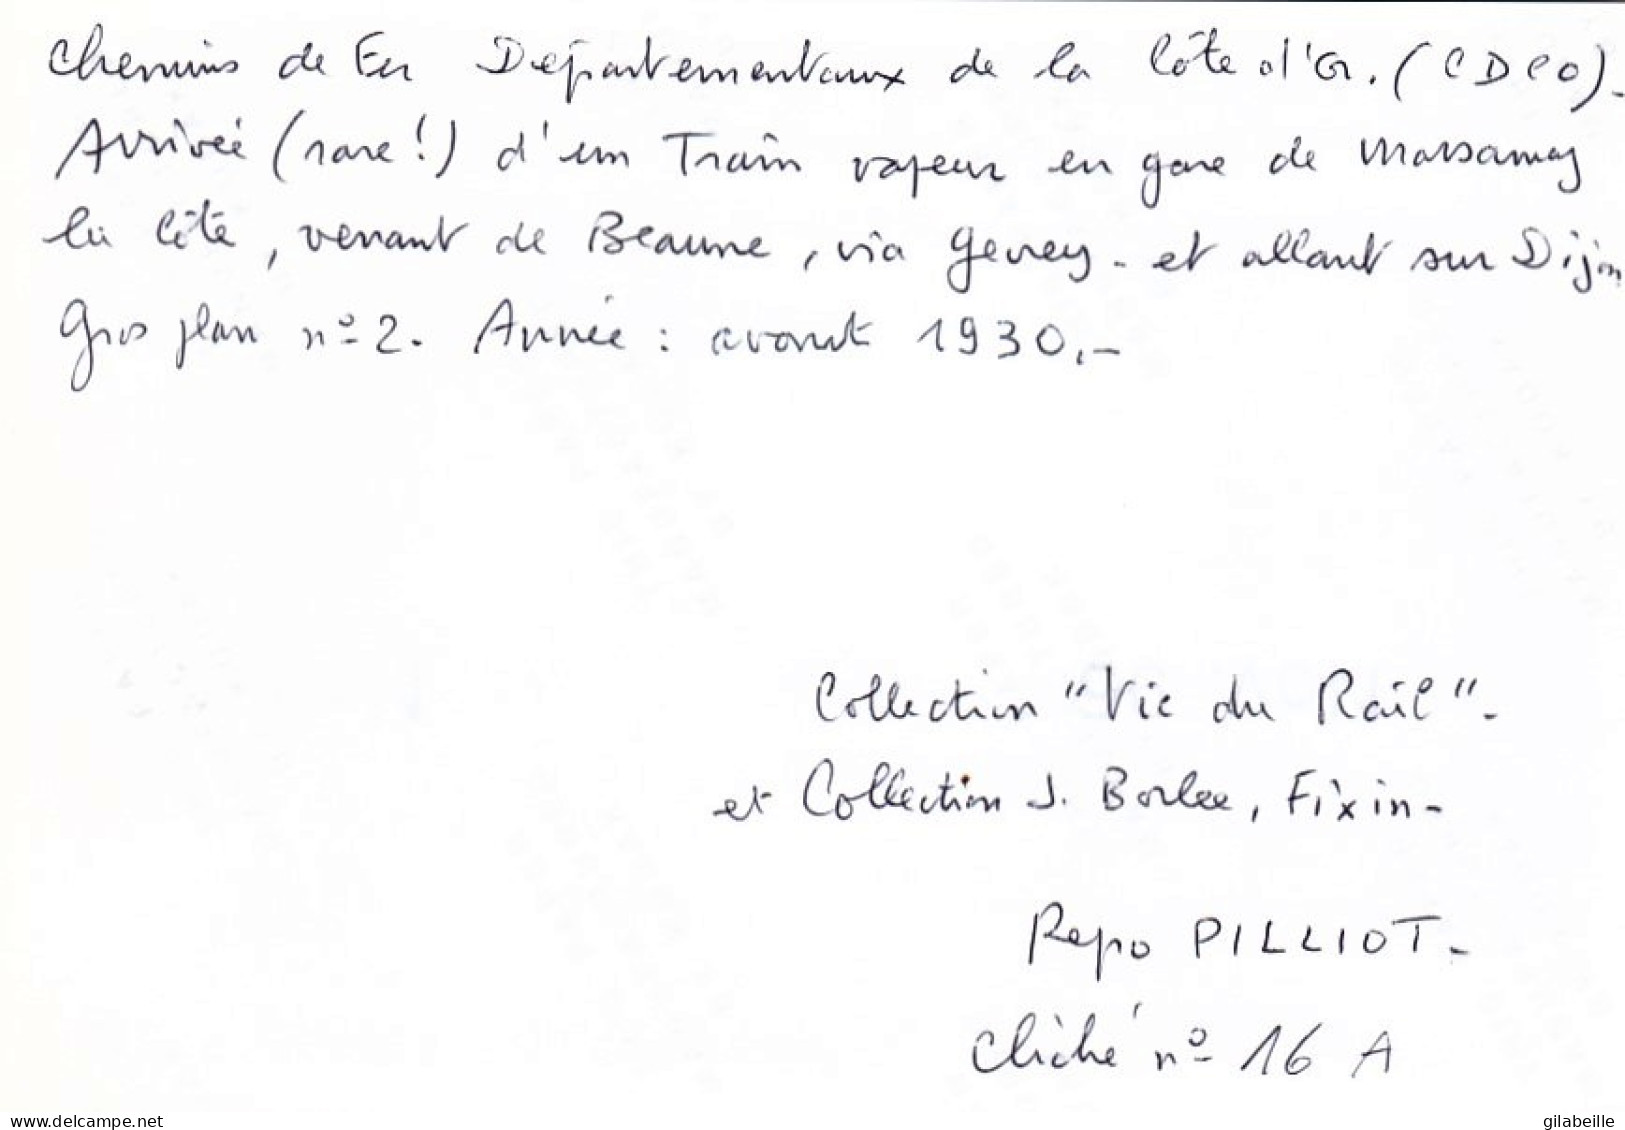 Chemins de Fer Départementaux de la Côte d'Or. (CDCO).-
Arrivée (rare!) d'un Train vapeur en gare de Marsannay
la Côte, venant de Beaune, via Gevrey - et allant sur Dijon
Gros plan n° 2. Année : avant 1930.-
Collection "Vie du Rail".-
et Collection J. Borlee, Fixin-
Repo PILLIOT.-
Cliché n° 16 A
www.delcampe.net
gilabeille